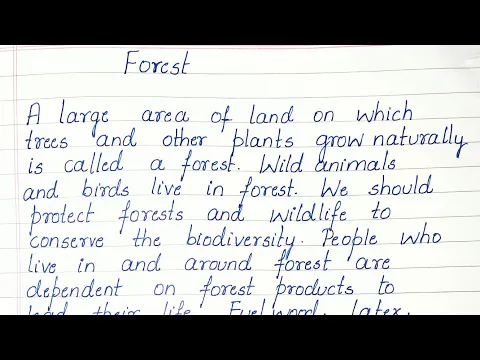 Forest
A large area of land on which
trees and other plants grow naturally
is called a forest. Wild animals
and birds live in forest. We should
protect forests and wildlife to
conserve the biodiversity. People who
live in and around forest are
dependent on forest products to
lead their life. Fuelwood, later,